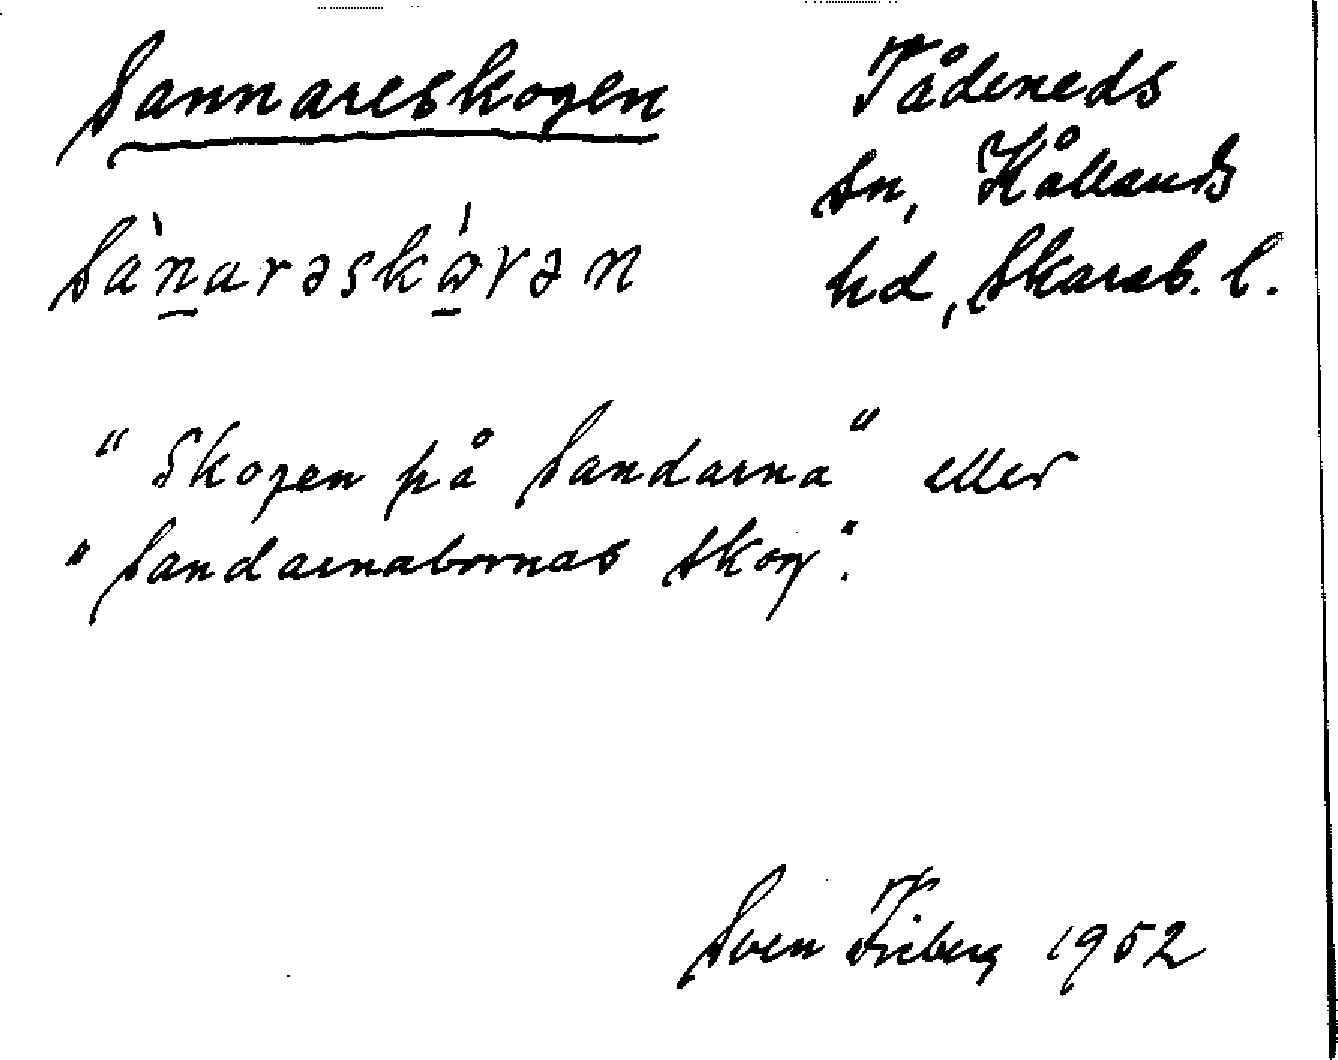 Sannareskogen
Tådeneds
sn, Kållands
hd, Skarab. l.
"Skogen på Sandarna" eller
"Sandarnabornas skog".
Sven Friberg 1952